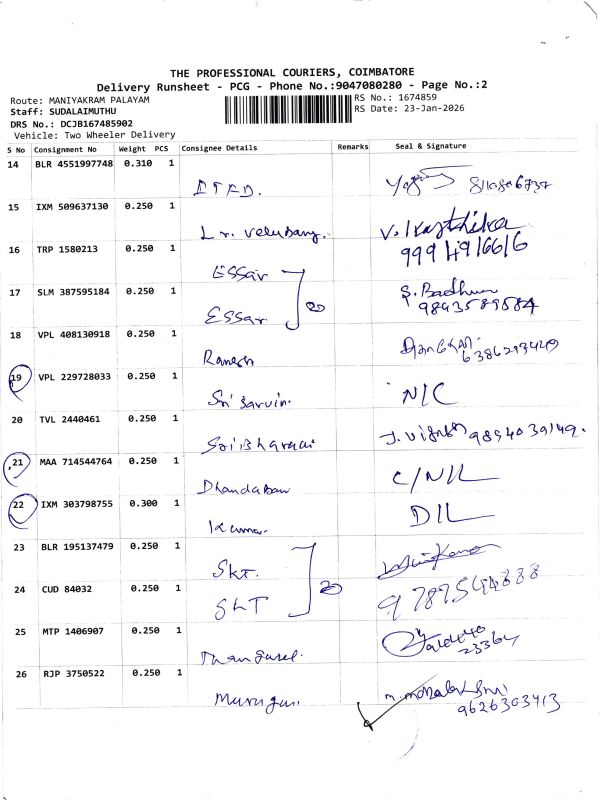 THE PROFESSIONAL COURIERS, COIMBATORE
Delivery Runsheet - PCG - Phone No.:9047080280 - Page No.:2
Route: MANIYAKRAM PALAYAM
RS No.: 1674859
Staff: SUDALAIMUTHU
RS Date: 23-Jan-2026
DRS No.: DCJB167485902
Vehicle: Two Wheeler Delivery
S No Consignment No Weight PCS Consignee Details Remarks Seal & Signature
14 BLR 4551997748 0.310 1
15 IXM 509637130 0.250 1
L.r. Velubang. V. Karthika
9994916616
16 TRP 1580213 0.250 1
ESSar
17 SLM 387595184 0.250 1
ESSar S. Badhu
9843589584
18 VPL 408130918 0.250 1
Ramesh
19 VPL 229728033 0.250 1
Sri Sarvin. N/C
20 TVL 2440461 0.250 1
Sri Bharani J. Vignesh 9894039149.
21 MAA 714544764 0.250 1
Dhandaban C/NIL
22 IXM 303798755 0.300 1
Kumar. DIL
23 BLR 195137479 0.250 1
SKT.
24 CUD 84032 0.250 1
SLT 9787544888
25 MTP 1406907 0.250 1
Thangavel
26 RJP 3750522 0.250 1
Murugan.
9626303413